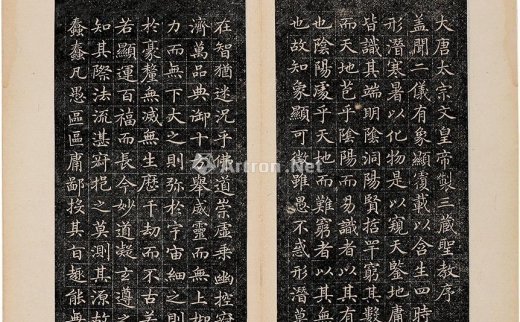 大唐太宗文皇帝製三藏聖教序
蓋聞二儀有象顯覆載以含生四時
形潛寒暑以化物是以窺天鑒地庸
皆識其端明陰洞陽賢哲罕窮其數
而天地苞乎陰陽而易識者以其有
也陰陽處乎天地而難窮者以其無
也故知象顯可徵雖愚不惑形潛莫
在智猶迷況乎佛道崇虛乘幽控寂
濟萬品典御十方舉威靈而無上抑
力而無下大之則彌於宇宙細之則
於豪釐無滅無生歷千劫而不古若
若顯運百福而長今妙道凝玄遵之
知其際法流湛寂挹之莫測其源故
蠢蠢凡愚區區庸鄙投其旨趣能無
Artron.Net